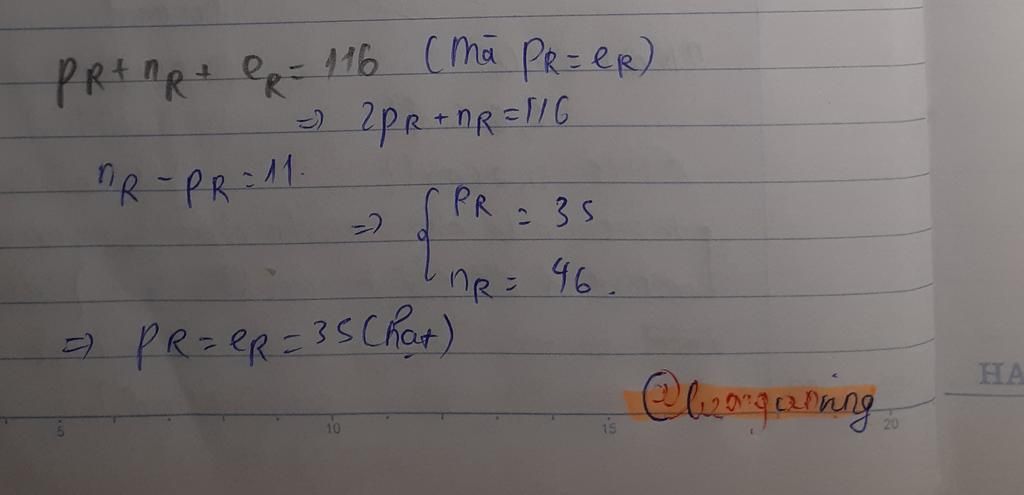 pR + nR + eR = 116 (Mà pR = eR)
=> 2pR + nR = 116
nR - pR = 11.
=> { pR = 35
nR = 46.
=> pR = eR = 35 (hạt)
HA
5 10 15 20